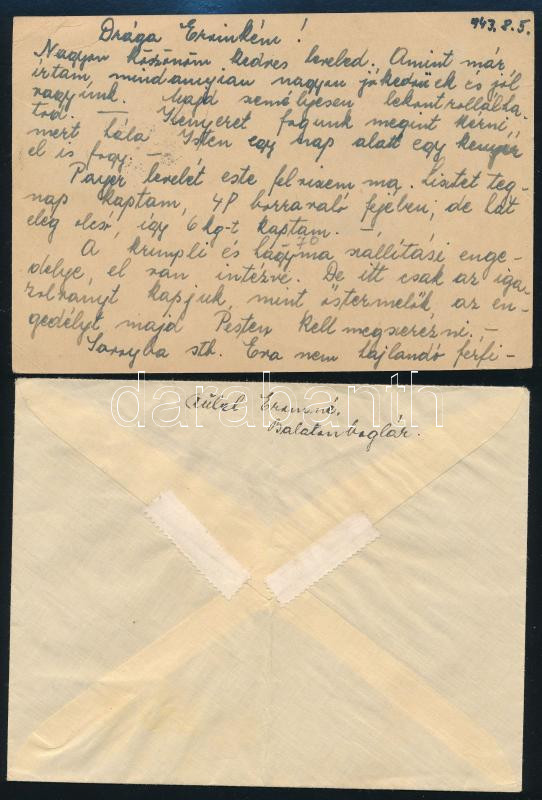 943.8.5.
Drága Ervinkém!
Nagyon köszönöm kedves leveled. Amint már
írtam, mindannyian nagyon jókedvűek és jól
vagyunk. Majd személyesen lekontrollálha-
tod. — Kenyeret fogunk megint kérni,
mert hála Isten egy nap alatt egy kenyér
el is fogy. —
Payer levelét este felviszem ma. Lisztet teg-
nap kaptam, 4P borravaló fejében, de hát
elég olcsó, így 6 kg-t kaptam. —
70
A krumpli és hagyma szállítási enge-
délye, el van intézve. De itt csak az iga-
zolványt kapjuk, mint őstermelők, az en-
gedélyt majd Pesten kell megszerezni. —
stb. Eva nem hajlandó férfi-
darabanth
Ervinné,
Balatonboglár.